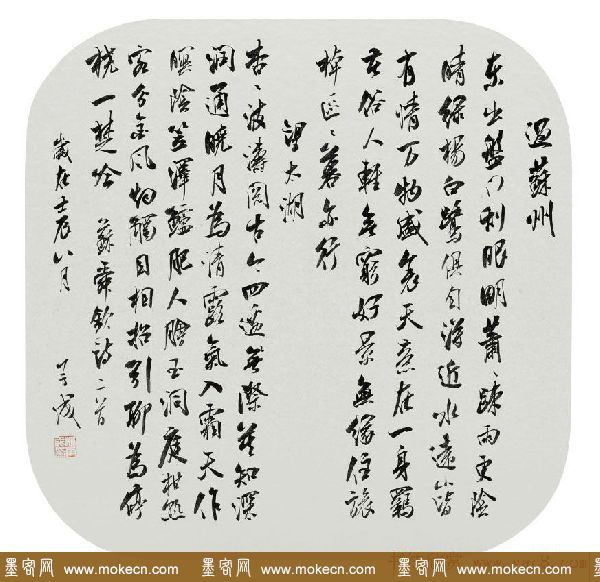 過蘇州
東出盤門刮眼明蕭々疎雨更陰
晴綠楊白鷺俱自得近水遠山皆
有情万物盛衰天意在一身羈
苦俗人輕無窮好景無緣住旅
棹區々暮亦行
望太湖
杳々波濤閱古今四邊無際莫知深
潤通曉月為清露氣入霜天作
暝陰笠澤鱸肥人膾玉洞庭柑熟
客分金風烟觸目相招引聊為停
橈一楚吟 蘇舜欽詩二首
歲在壬辰八月
墨客网 www.mokecn.com 墨客网 www.mokecn.com 墨客网 www.mokecn.com